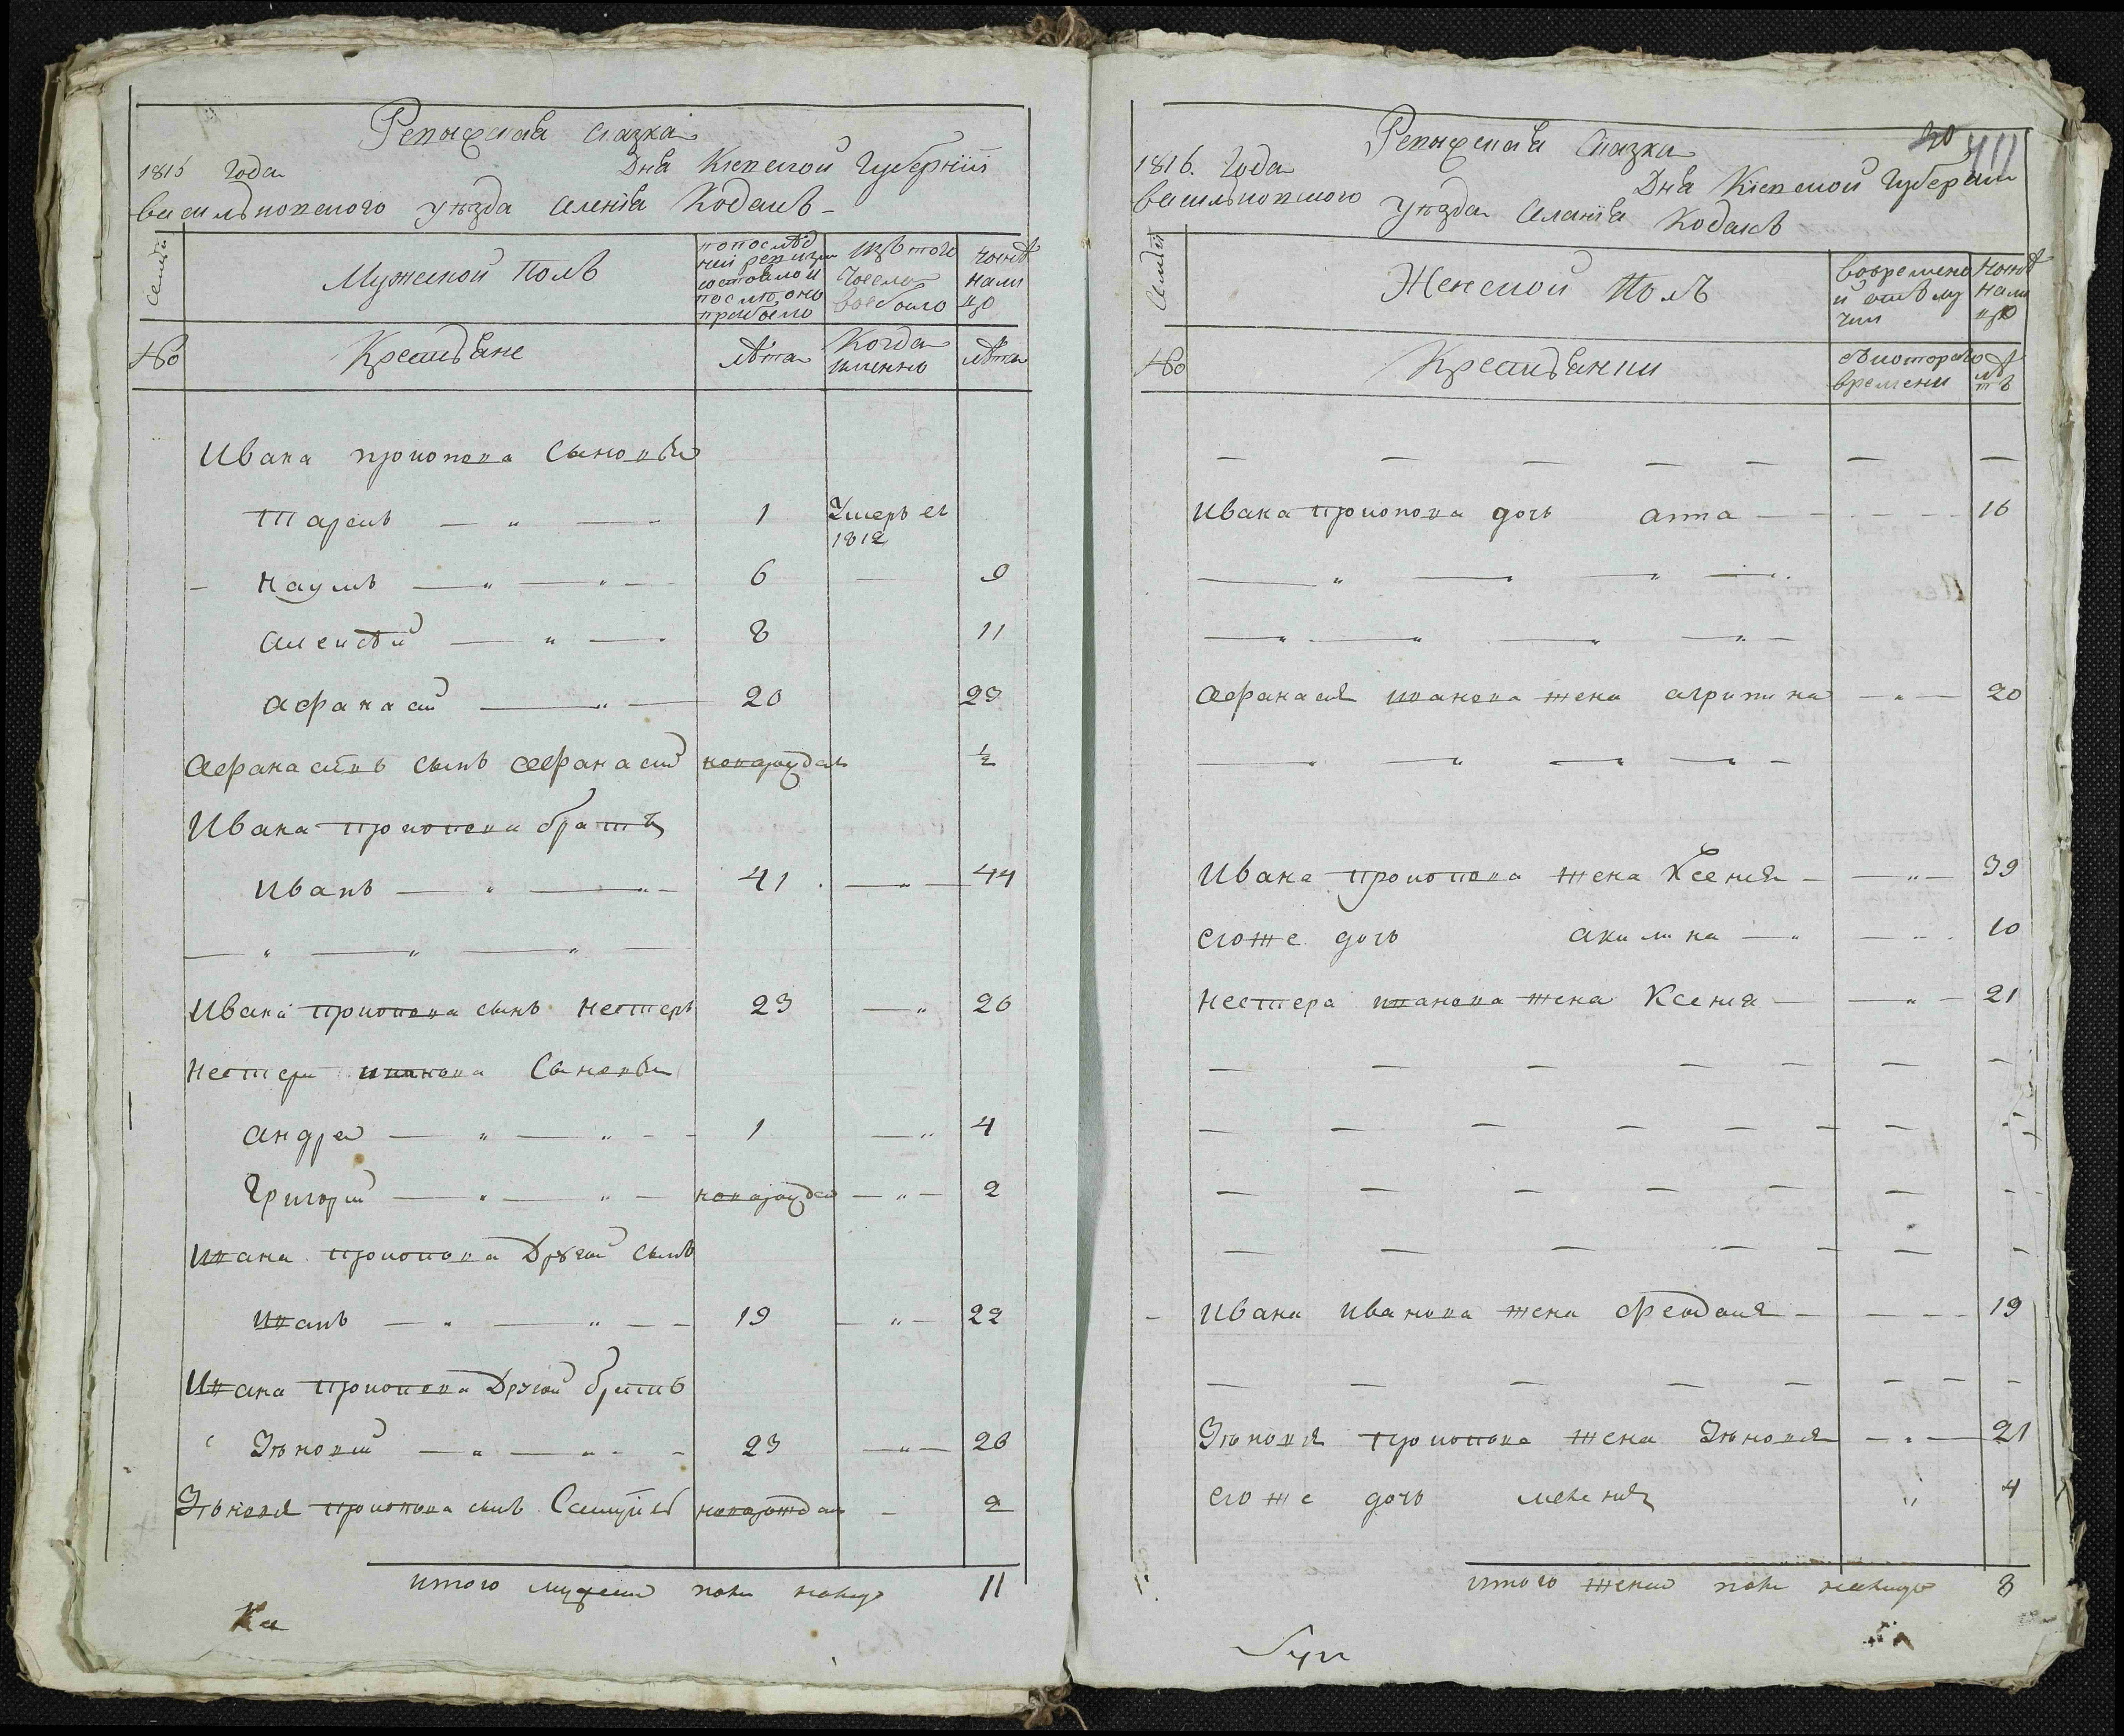 Ревизская сказка
1816 года Дня Киевской Губернии
васильковского уезда селения Кодакъ
Семьи
Мужеской Полъ
по последней ревизии состояло и после оной прибыло
Изъ того числа выбыло
Ныне налицо
№
Крестьяне
лѣта
Когда именно
лѣта
Ивана прокопова сыновья
Тарасъ 1 Умеръ въ 1812
Наумъ 6 9
Алексѣй 8 11
Афанасий 20 23
Афанасиевъ сынъ Афанасий новорожденъ ½
Ивана прокопова братъ
Иванъ 41 44
Ивана прокопова сынъ Нестеръ 23 26
Нестера иванова Сыновья
Андрей 1 4
Григорий новорожденъ 2
Ивана прокопова Другой сынъ
Иванъ 19 22
Ивана прокопова Другой братъ
Зѣновий 23 26
Зѣновия прокопова сынъ новорожденъ 2
итого мужеска пола налицо 11
Ка
Ревизская Сказка
40 411
1816. Года Дня Киевской Губернии
васильковского Уезда Селения Кодакъ
Семьи
Женской Полъ
во временной отлучки
Ныне налицо
№
Крестьянки
съ которого времени
лѣтъ
Ивана прокопова дочь анна 16
Афанасия иванова жена агрипина 20
Ивана прокопова жена Ксения 39
его же дочь акилина 10
Нестера иванова жена Ксения 21
Ивана Иванова жена Феодосия 19
Зѣновия прокопова жена Зѣновия 21
его же дочь 4
итого женска пола налицо 8